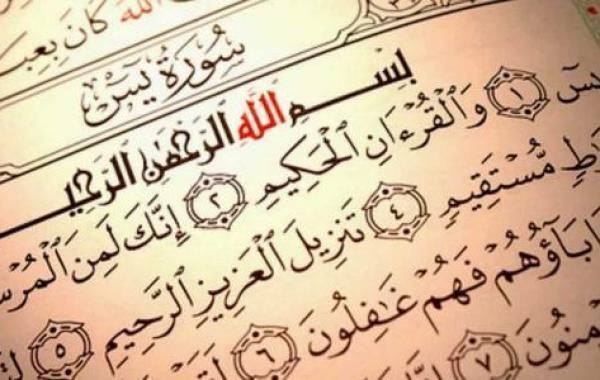 الله كان بعب
سورة يس
بسم الله الرحمن الرحي
يسٓ ١ وَٱلْقُرْءَانِ ٱلْحَكِيمِ ٢ إِنَّكَ لَمِنَ ٱلْمُرْسَ
رَٰطٍ مُّسْتَقِيمٍ ٤ تَنزِيلَ ٱلْعَزِيزِ ٱلرَّحِيمِ ٥
ءَابَآؤُهُمْ فَهُمْ غَـٰفِلُونَ ٦ لَقَدْ
مِنُونَ ٧ إِنَّا